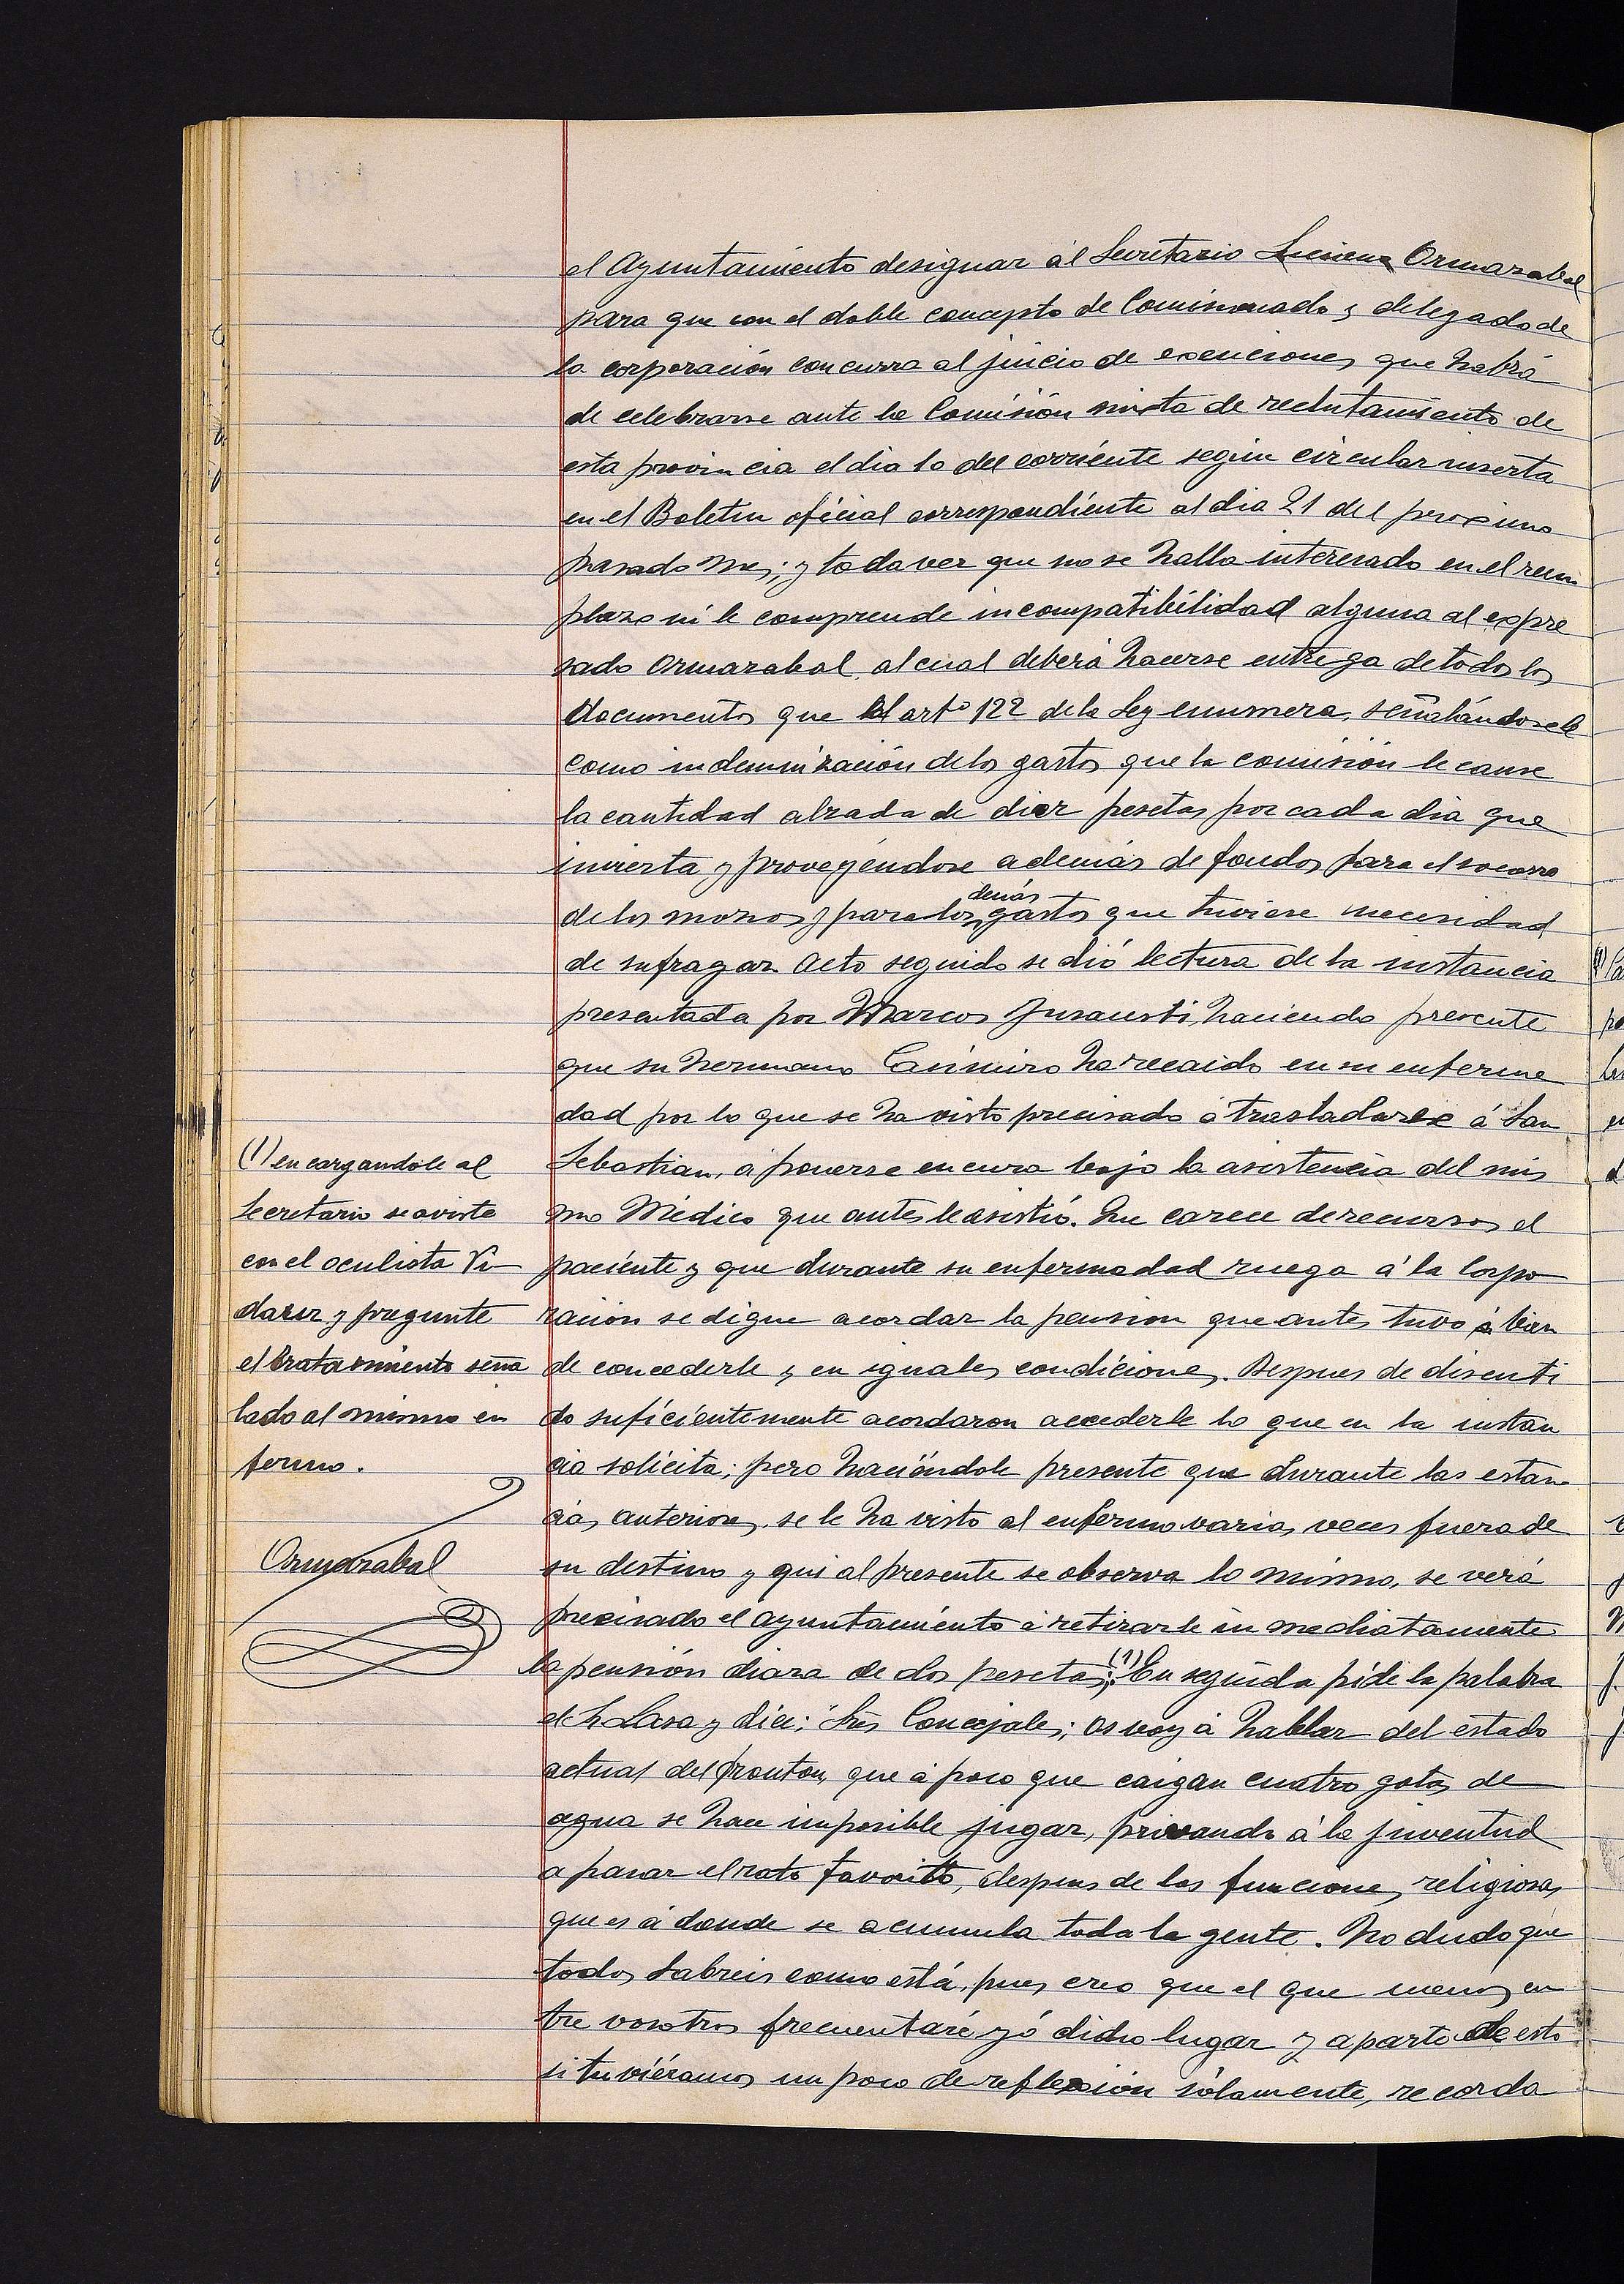 el Ayuntamiento designar al Secretario Luciano Ormazabal
para que con el doble concepto de Comisionado y delegado de
la corporación concurra al juicio de exenciones que habrá
de celebrarse ante la Comisión mixta de reclutamiento de
esta provincia el dia 10 del corriente según circular inserta
en el Boletin oficial correspondiente al dia 21 del proximo
pasado mes; y toda vez que no se halla interesado en el reem
plazo ni le comprende incompatibilidad alguna al expre
sado Ormazabal, al cual deberá hacerse entrega de todos los
documentos que el artº 122 de la Ley enumera, señalándosele
como indemnización de los gastos que la comisión le cause
la cantidad alzada de diez pesetas por cada dia que
invierta y proveyéndose además de fondos para el socorro
demás
de los mozos y para los gastos que tuviese necesidad
de sufragar. Acto seguido se dió lectura de la instancia
presentada por Marcos Insausti, haciendo presente
que su hermano Casimiro ha recaido en su enferme
dad por lo que se ha visto precisado á trasladarse á San
Sebastian, á ponerse en cura bajo la asistencia del mis
mo Médico que antes le asistió. Que carece de recursos el
paciente y que durante su enfermedad ruega á la Corpo
ración se digne acordar la pension que antes tuvo á bien
de concederle y en iguales condiciones. Despues de discuti
do suficientemente acordaron accederle lo que en la instan
cia solicita; pero haciéndole presente que durante las estan
cias anteriores, se le ha visto al enfermo varias veces fuera de
su destino y qui al presente se observa lo mismo, se verá
precisado el ayuntamiento á retirarle inmediatamente
la pensión diara de dos pesetas; (1) En seguida pide la palabra
el Sr Lasa y dice: Sres Concejales; os voy á hablar del estado
actual del fronton, que á poco que caigan cuatro gotas de
agua se hace imposible jugar, privando á la juventud
a pasar el rato favorito, despues de las funciones religiosas
que es á donde se acumula toda la gente. No dudo que
todos sabreis como está, pues creo que el que menos en
tre vosotros frecuentaré yó dicho lugar y aparte de esto
si tuviéramos un poco de reflexión sólamente, recorda
(1) encargandole al
Secretario se aviste
con el oculista Vi
daur y pregunte
el tratamiento seña
lado al mismo en
fermo.
Ormazabal